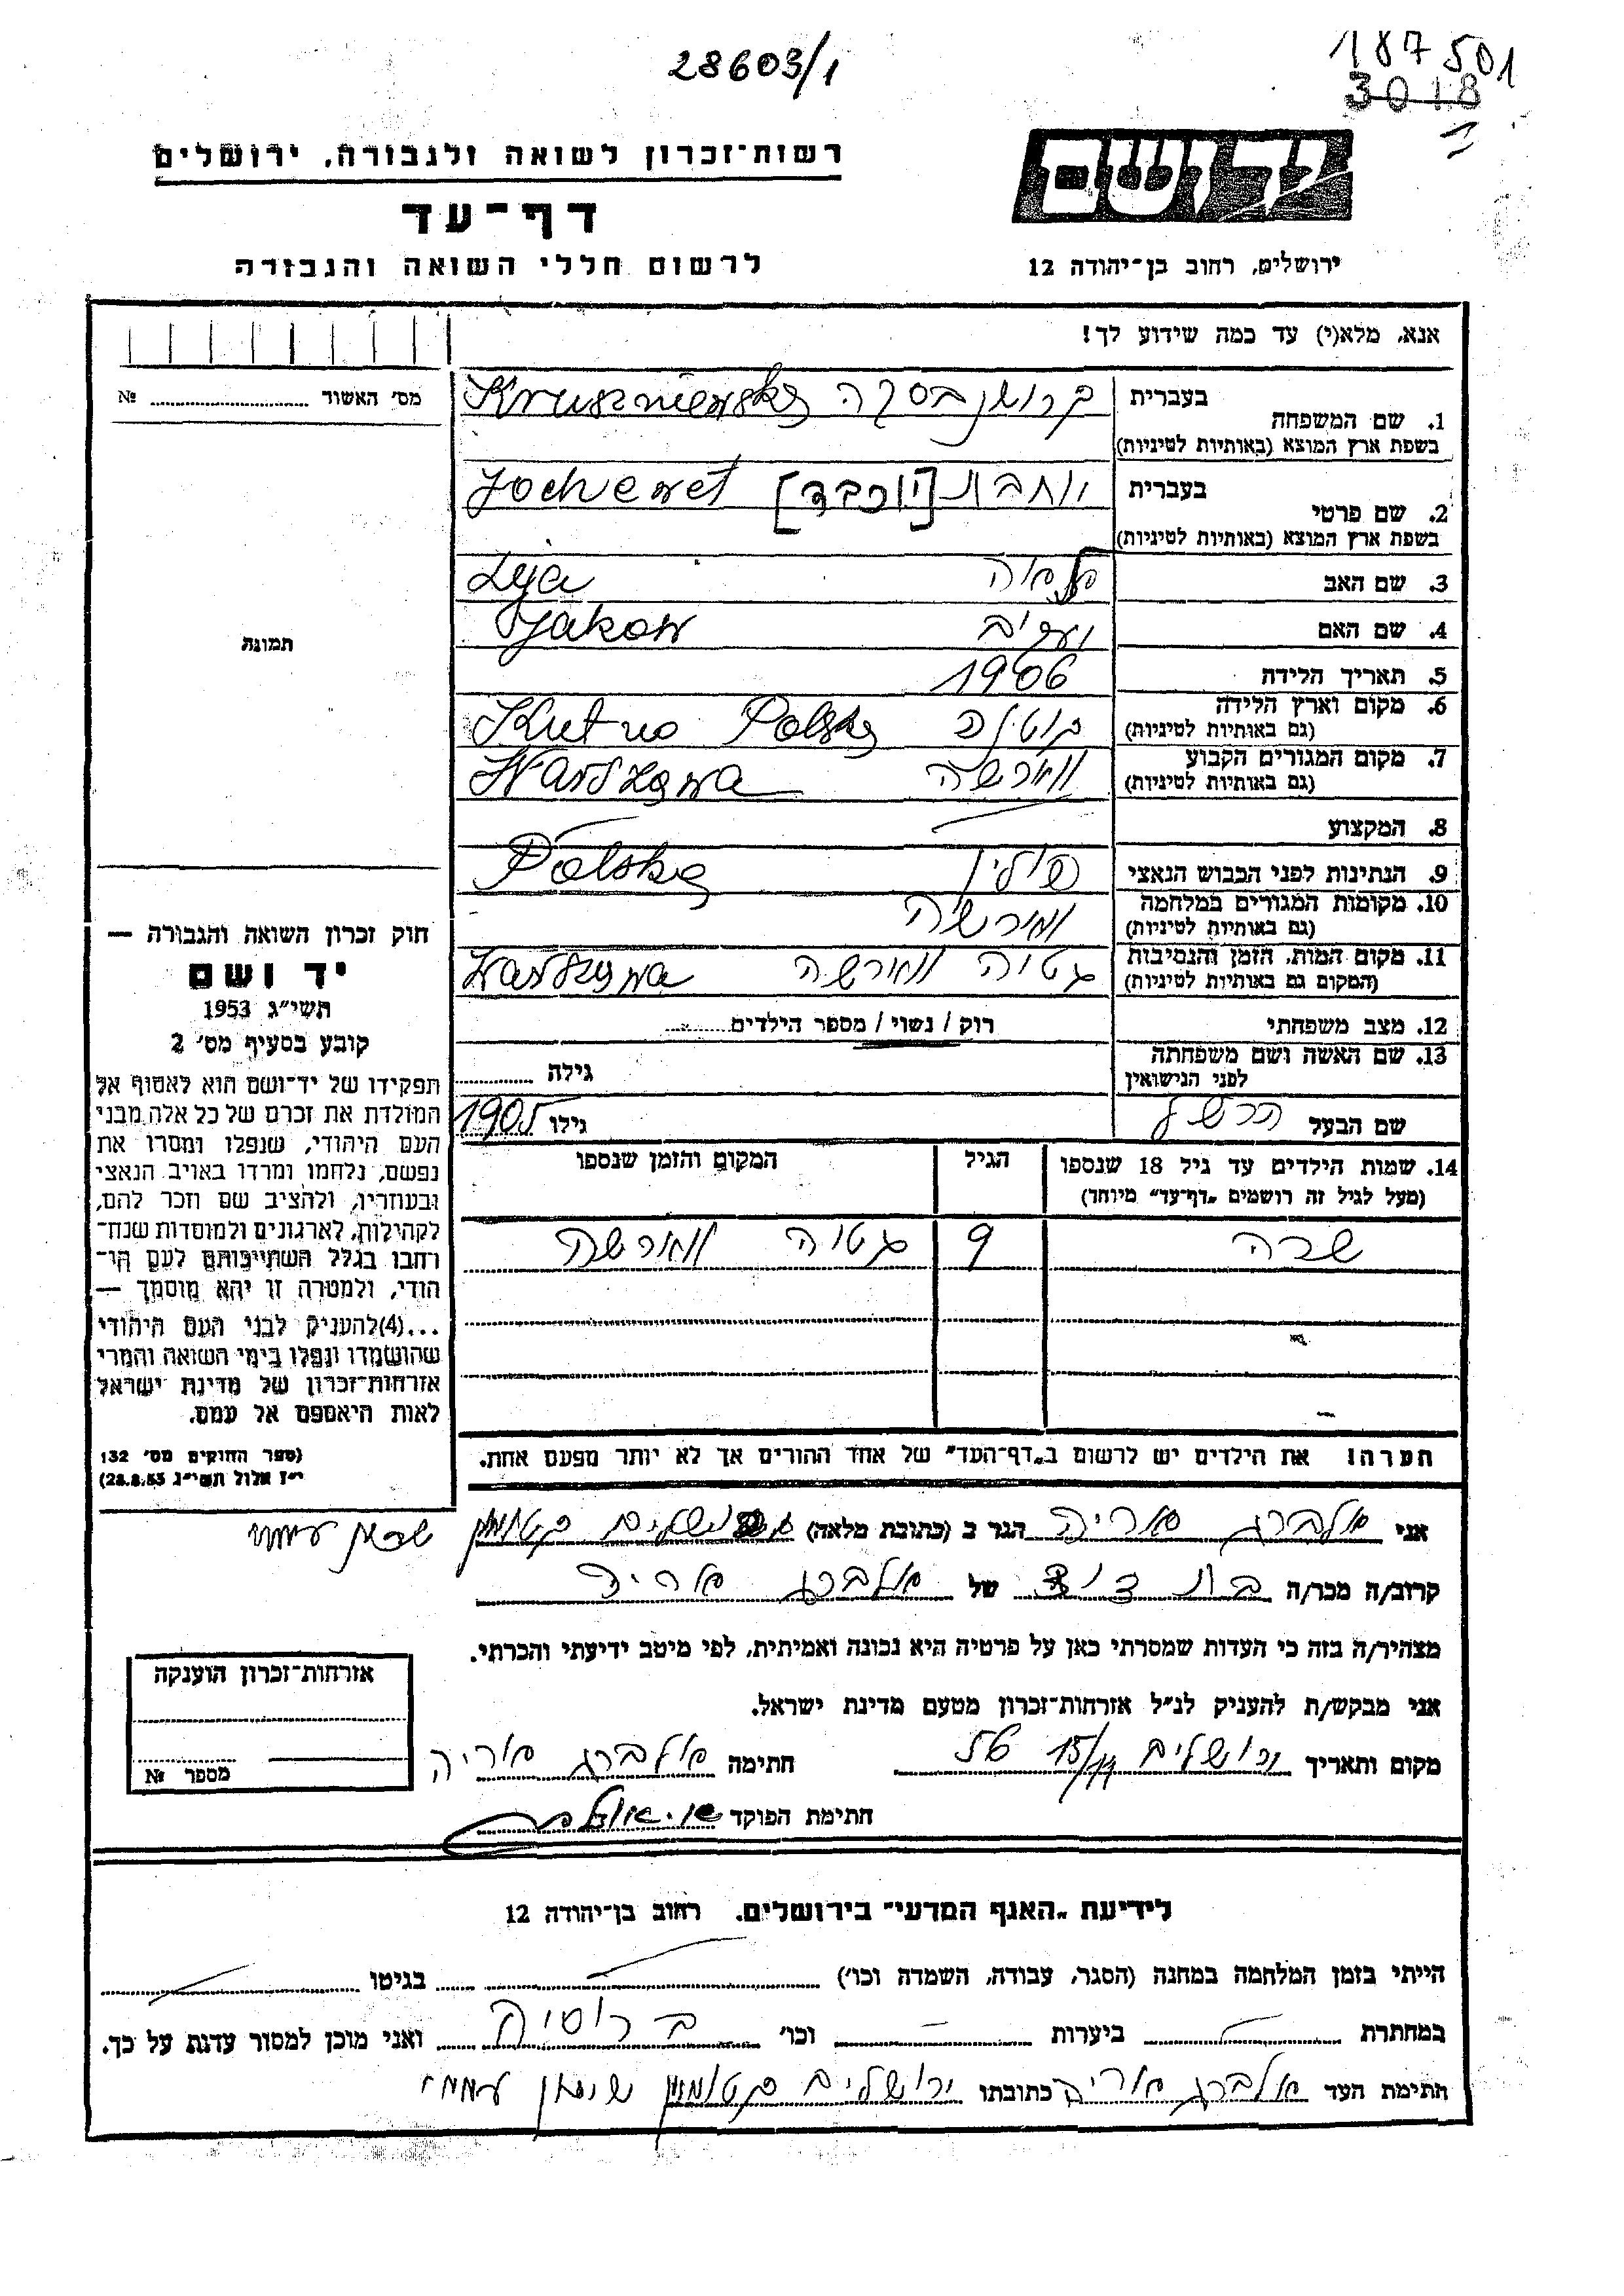 28603/1
187501
3018
רשות־זכרון לשואה ולגבורה, ירושלים
דף־עד
לרשום חללי השואה והגבורה
יד ושם
ירושלים, רחוב בן־יהודה 12
אנא, מלא(י) עד כמה שידוע לך!
מס' האשור № 
תמונה
בעברית
1. שם המשפחה
בשפת ארץ המוצא (באותיות לטיניות)
קרושנבסקה Kruszniewska
בעברית
2. שם פרטי
בשפת ארץ המוצא (באותיות לטיניות)
יוחבת [יוכבד] Jochewet
3. שם האב Lyja
4. שם האם Jakow
5. תאריך הלידה 1906
6. מקום וארץ הלידה
(גם באותיות לטיניות)
קוטנה Kutno Polska
7. מקום המגורים הקבוע
(גם באותיות לטיניות)
ווארשה Warszawa
8. המקצוע
9. הנתינות לפני הכבוש הנאצי פולין Polska
10. מקומות המגורים במלחמה
(גם באותיות לטיניות)
ווארשה
11. מקום המות, הזמן והנסיבות
(המקום גם באותיות לטיניות)
גטוה ווארשה Warszawa
12. מצב משפחתי רוק / נשוי / מספר הילדים
13. שם האשה ושם משפחתה
לפני הנישואין
גילה
שם הבעל הרשל גילו 1905
14. שמות הילדים עד גיל 18 שנספו הגיל המקום והזמן שנספו
(מעל לגיל זה רושמים "דף־עד" מיוחד)
שרה 9 גטוה ווארשה
הערה! את הילדים יש לרשום ב"דף־העד" של אחד ההורים אך לא יותר מפעם אחת.
חוק זכרון השואה והגבורה —
יד ושם
תשי"ג 1953
קובע בסעיף מס' 2
תפקידו של יד־ושם הוא לאסוף אל
המולדת את זכרם של כל אלה מבני
העם היהודי, שנפלו ומסרו את
נפשם, נלחמו ומרדו באויב הנאצי
ובעוזריו, ולהציב שם וזכר להם,
לקהילות, לארגונים ולמוסדות שנח־
רבו בגלל השתייכותם לעם הי־
הודי, ולמטרה זו יהא מוסמך —
...(4)להעניק לבני העם היהודי
שהושמדו ונפלו בימי השואה והמרי
אזרחות־זכרון של מדינת ישראל
לאות היאספם אל עמם.
(ספר החוקים מס' 132
י"ז אלול תשי"ג 28.8.53)
אני אלברג אריה הגר ב (כתובת מלאה) ירושלים קטמון
קרוב/ה מכר/ה בת דוד של אלברג אריה
מצהיר/ה בזה כי העדות שמסרתי כאן על פרטיה היא נכונה ואמיתית, לפי מיטב ידיעתי והכרתי.
אני מבקש/ת להעניק לנ"ל אזרחות־זכרון מטעם מדינת ישראל.
מקום ותאריך ירושלים 15/11 חתימה אלברג אריה
חתימת הפוקד
אזרחות־זכרון הוענקה
מספר №
לידיעת "האגף המדעי" בירושלים. רחוב בן־יהודה 12
הייתי בזמן המלחמה במחנה (הסגר, עבודה, השמדה וכו') בגיטו
במחתרת ביערות וכו' ברוסיה ואני מוכן למסור עדות על כך.
חתימת העד אלברג אריה כתובתו ירושלים קטמון